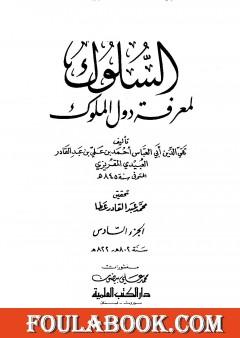 السلوك
لمعرفة دول الملوك
تأليف
تقي الدين أبي العباس أحمد بن علي بن عبد القادر
العبيدي المقريزي
المتوفى سنة ٨٤٥هـ
تحقيق
محمد عبد القادر عطا
الجزء السادس
سنة ٨٠٢هـ - ٨٢٢هـ
منشورات
محمد علي بيضون
دار الكتب العلمية
بيروت - لبنان
FOULABOOK.COM